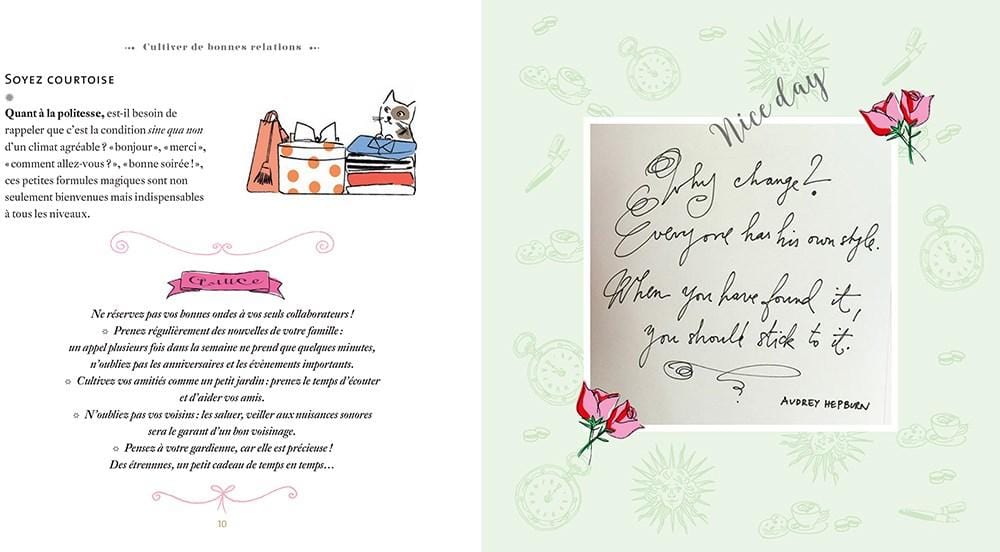 Cultiver de bonnes relations
SOYEZ COURTOISE
Quant à la politesse, est-il besoin de
rappeler que c'est la condition sine qua non
d'un climat agréable ? « bonjour », « merci »,
« comment allez-vous ? », « bonne soirée ! »,
ces petites formules magiques sont non
seulement bienvenues mais indispensables
à tous les niveaux.
Ne réservez pas vos bonnes ondes à vos seuls collaborateurs !
Prenez régulièrement des nouvelles de votre famille :
un appel plusieurs fois dans la semaine ne prend que quelques minutes,
n'oubliez pas les anniversaires et les évènements importants.
Cultivez vos amitiés comme un petit jardin : prenez le temps d'écouter
et d'aider vos amis.
N'oubliez pas vos voisins : les saluer, veiller aux nuisances sonores
sera le garant d'un bon voisinage.
Pensez à votre gardienne, car elle est précieuse !
Des étrennnes, un petit cadeau de temps en temps…
10
Nice day
Why change?
Everyone has his own style.
When you have found it,
you should stick to it.
AUDREY HEPBURN